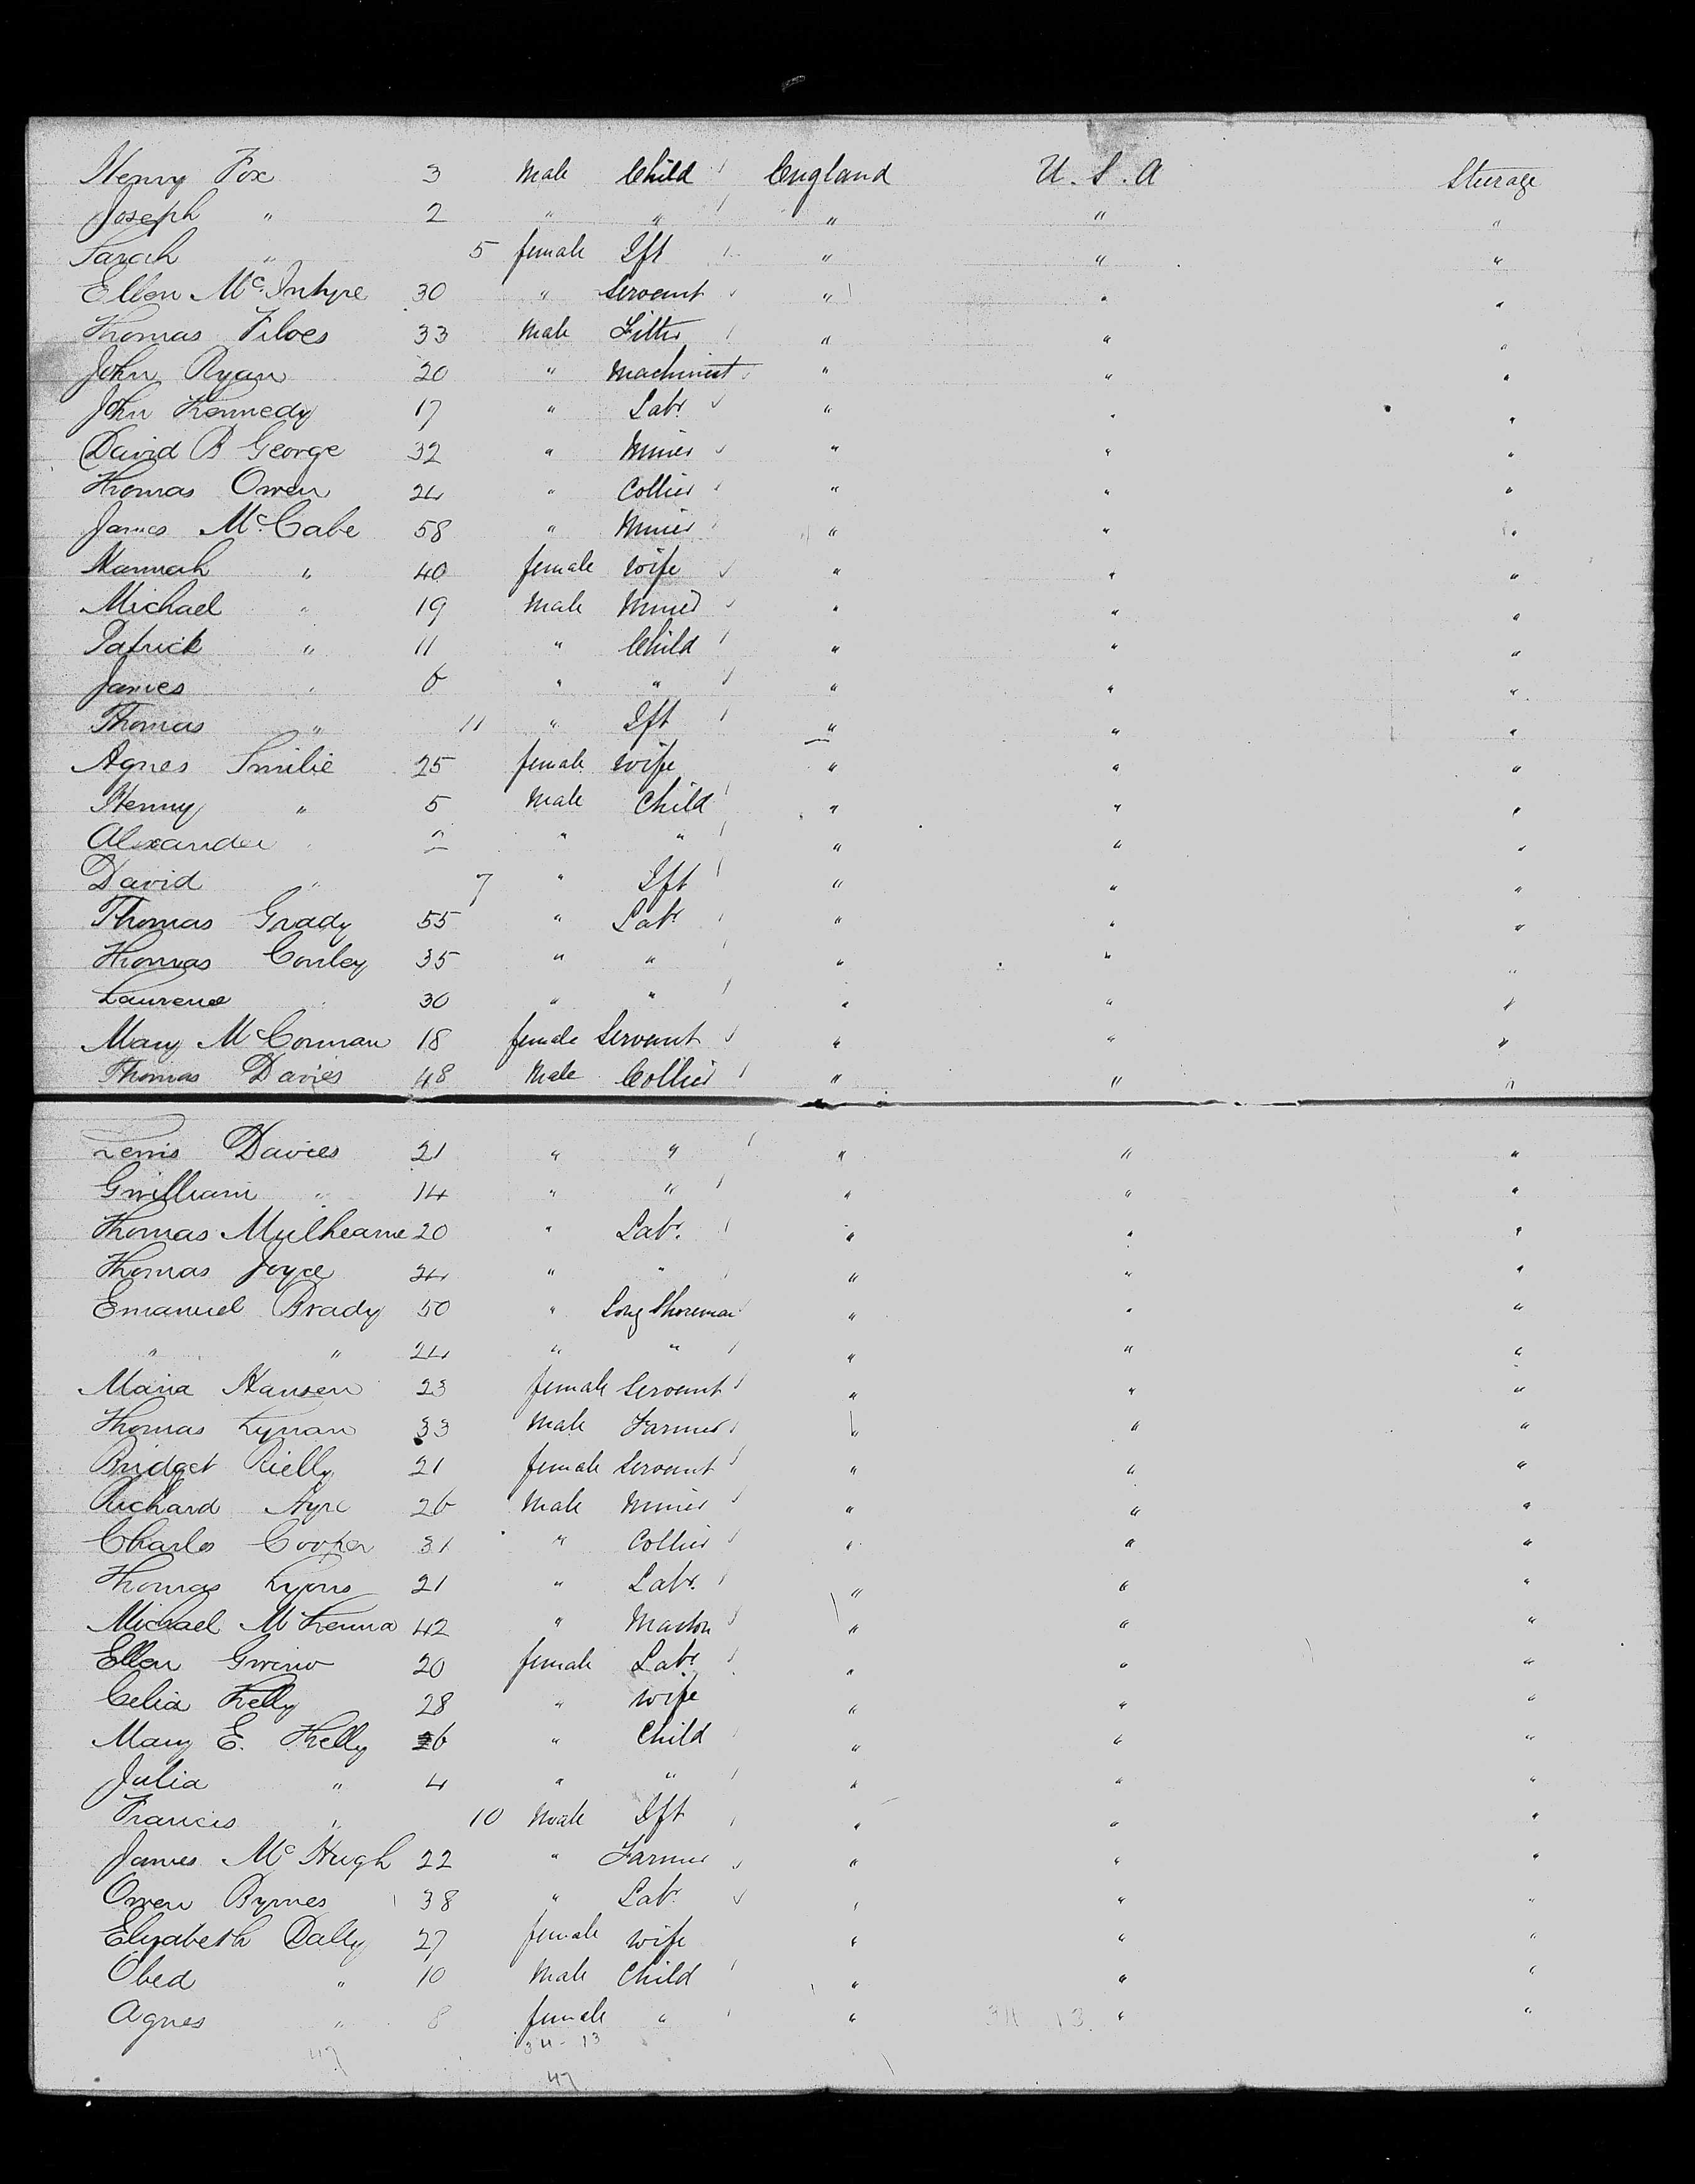 Henry Fox 3 Male Child England U.S.A Sturage
Joseph " 2 " " " " "
Sarah " 5 female Ift " " "
Ellen McIntyre 30 " Servant " " "
Thomas Filoes 33 Male Fitter " " "
John Ryan 20 " Machinist " " "
John Kennedy 17 " Labr " " "
David B George 32 " Miner " " "
Thomas Owen 24 " Collier " " "
James McCabe 58 " Miner " " "
Hannah " 40 female Wife " " "
Michael " 19 Male Miner " " "
Patrick " 11 " Child " " "
James " 6 " " " " "
Thomas " 11 " Ift " " "
Agnes Smilie 25 female Wife " " "
Henry " 5 Male Child " " "
Alexander " 2 " " " " "
David " 7 " Ift " " "
Thomas Grady 55 " Labr " " "
Thomas Conley 35 " " " " "
Laurence " 30 " " " " "
Mary McCorman 18 female Servant " " "
Thomas Davies 48 Male Collier " " "
Lewis Davies 21 " " " " "
Gwilliam " 14 " " " " "
Thomas Mulhearne 20 " Labr. " " "
Thomas Joyce 24 " " " " "
Emanuel Brady 50 " Long Shoreman " " "
" " 24 " " " " "
Maria Hansen 23 female Servant " " "
Thomas Lynan 33 Male Farmer " " "
Bridget Rielly 21 female Servant " " "
Richard Ayre 26 Male Miner " " "
Charles Cooper 31 " Collier " " "
Thomas Lyons 21 " Labr. " " "
Michael McKenna 42 " Maston " " "
Ellen 20 female Labr " " "
Celia Kelly 28 " Wife " " "
Mary E. Kelly 6 " Child " " "
Julia " 4 " " " " "
Francis " 10 Male Ift " " "
James McHugh 22 " Farmer " " "
Owen Byrnes 38 " Labr " " "
Elizabeth Dally 27 female Wife " " "
Obed " 10 Male Child " " "
Agnes " 8 female " " 34 13 " "
34-13
47 47